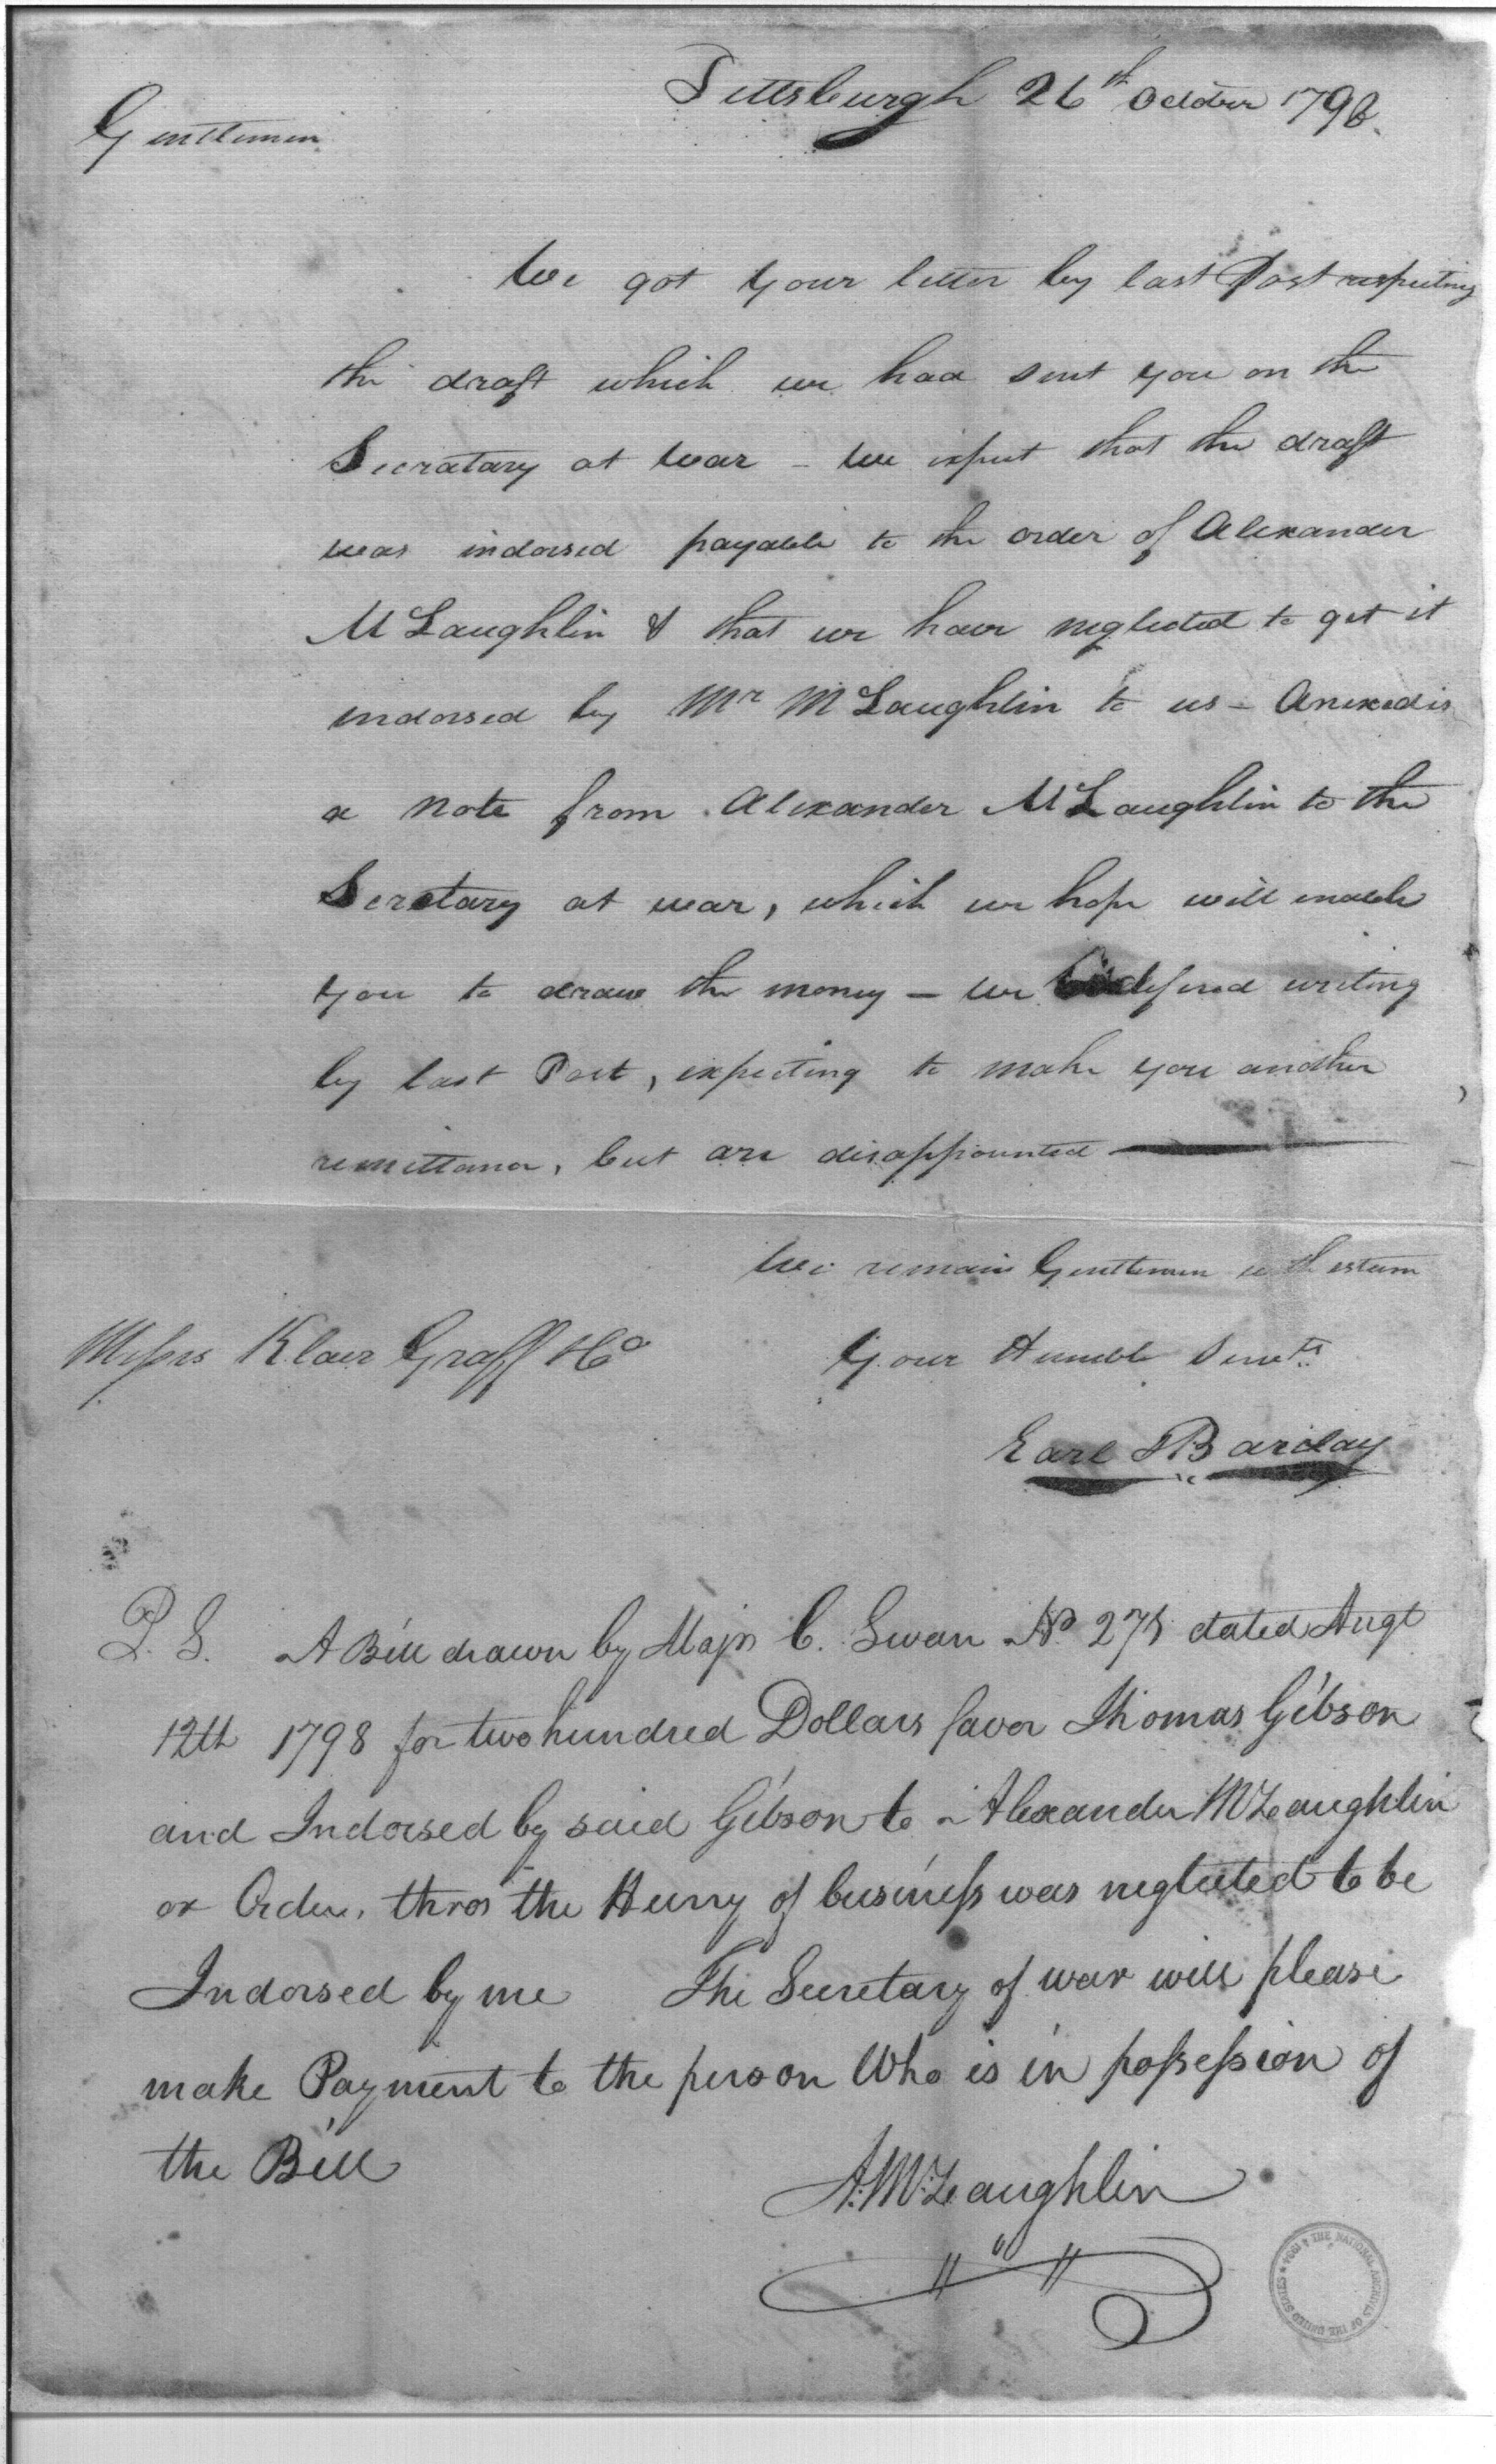 Pittsburgh 26th October 1798.
Gentlemen
We got your letter by last Post respecting
the draft which we had sent you on the
Secratary at War – We expect that the draft
was indorsed payable to the order of Alexander
McLaughlin & that we have neglected to get it
indorsed by Mr McLaughlin to us – Anexed is
a Note from Alexander McLaughlin to the
Secretary at war, which we hope will enable
you to draw the money – we defered writing
by last Post, expecting to make you another
remittance, but are disappointed
We remain Gentlemen with esteem
Messrs Klaer Graff & Co
Your Humble Servts.
Earl & Barclay
P. S. A Bill drawn by Majr C. Swan No. 275 dated Augt
12th 1798 for two hundred Dollars favor Thomas Gibson
and Indorsed by said Gibson to Alexander McLaughlin
or Order, thro' the Hurry of business was neglected to be
Indorsed by me The Secretary of war will please
make Payment to the person Who is in possession of
the Bill
A. McLaughlin
THE NATIONAL ARCHIVES OF THE UNITED STATES ★ 1934